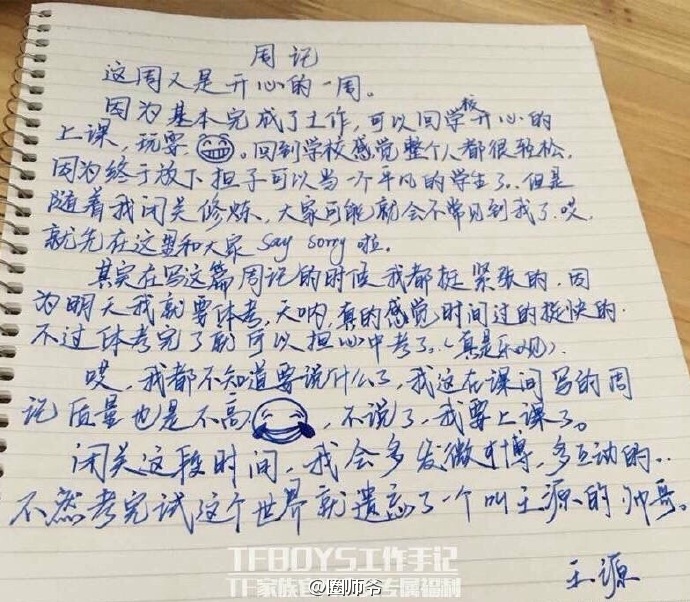 周记
这周又是开心的一周。
因为基本完成了工作,可以回学校开心的
上课,玩耍 。回到学校感觉整个人都很轻松,
因为终于放下担子可以当一个平凡的学生了。但是
随着我闭关修炼,大家可能就会不常见到我了,哎,
就先在这里和大家 say sorry 啦。
其实在写这篇周记的时候我都挺紧张的,因
为明天我就要体考,天呐,真的感觉时间过的挺快的.
不过体考完了就可以担心中考了。(真是乐观).
哎,我都不知道要说什么了,我这在课间写的周
记质量也是不高 ,不说了,我要上课了。
闭关这段时间,我会多发微博,多互动的..
不然考完试这个世界就遗忘了一个叫王源的帅哥。
王源
TFBOYS工作手记
TF家族官 专属福利
@圈师爷